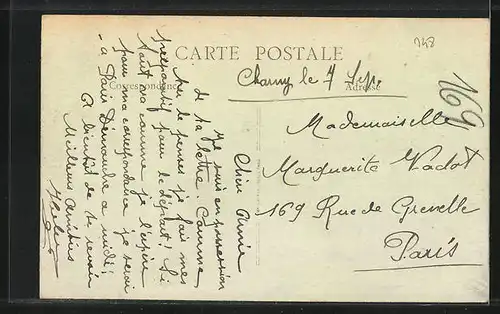 148
CARTE POSTALE
Correspondance
Adresse
Charny le 7 Sep.
169
Mademoiselle
Marguerite Vadot
169 Rue de Grenelle
Paris
Chère Amie
Je suis en possession
de ta lettre. Comme
tu le penses je fais mes
préparatifs pour le départ! Si
tout va comme je l'espère
pour ma correspondance je serai
à Paris Dimanche à midi;
A bientôt de te revoir
Meilleures Amitiés